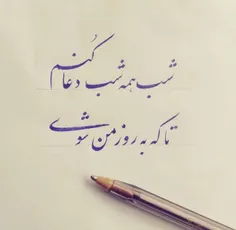 شب همه شب دعا کُنم
تا که به روز من شوی